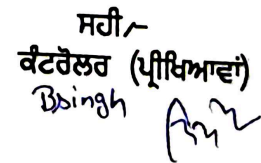 ਸਹੀ/-
ਕੰਟਰੋਲਰ (ਪ੍ਰੀਖਿਆਵਾਂ)
Bsingh